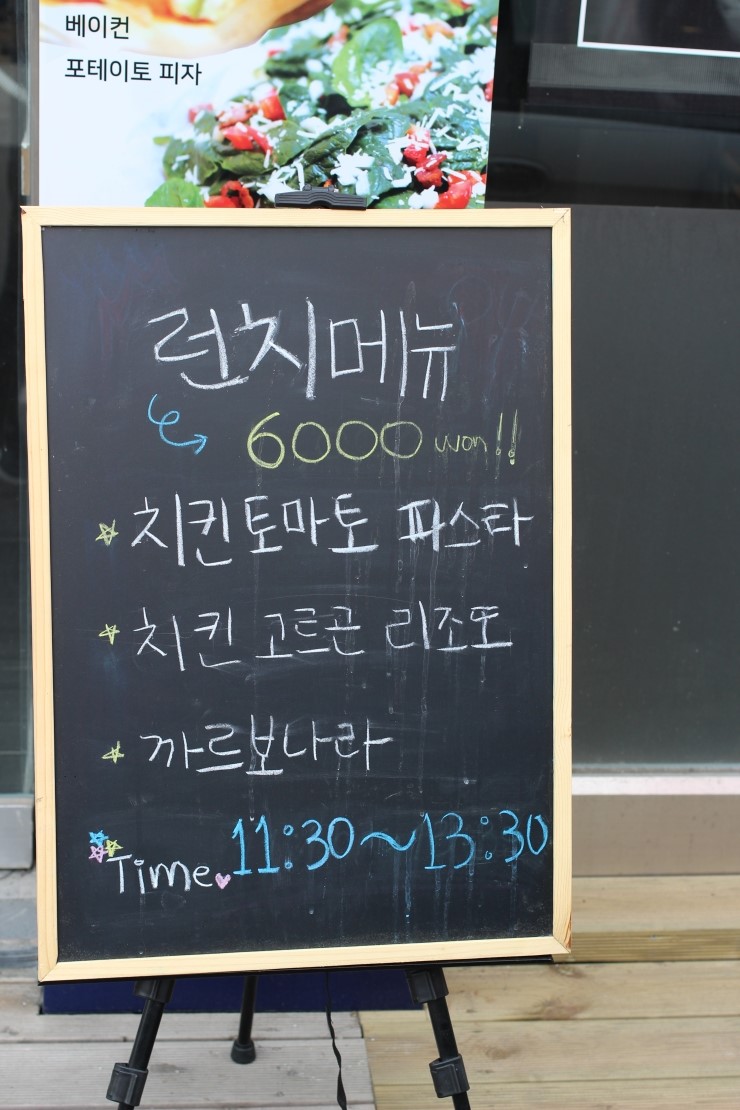 베이컨
포테이토 피자
런치메뉴
6000 won!!
치킨토마토 파스타
치킨 고르곤 리조또
까르보나라
Time 11:30~13:30